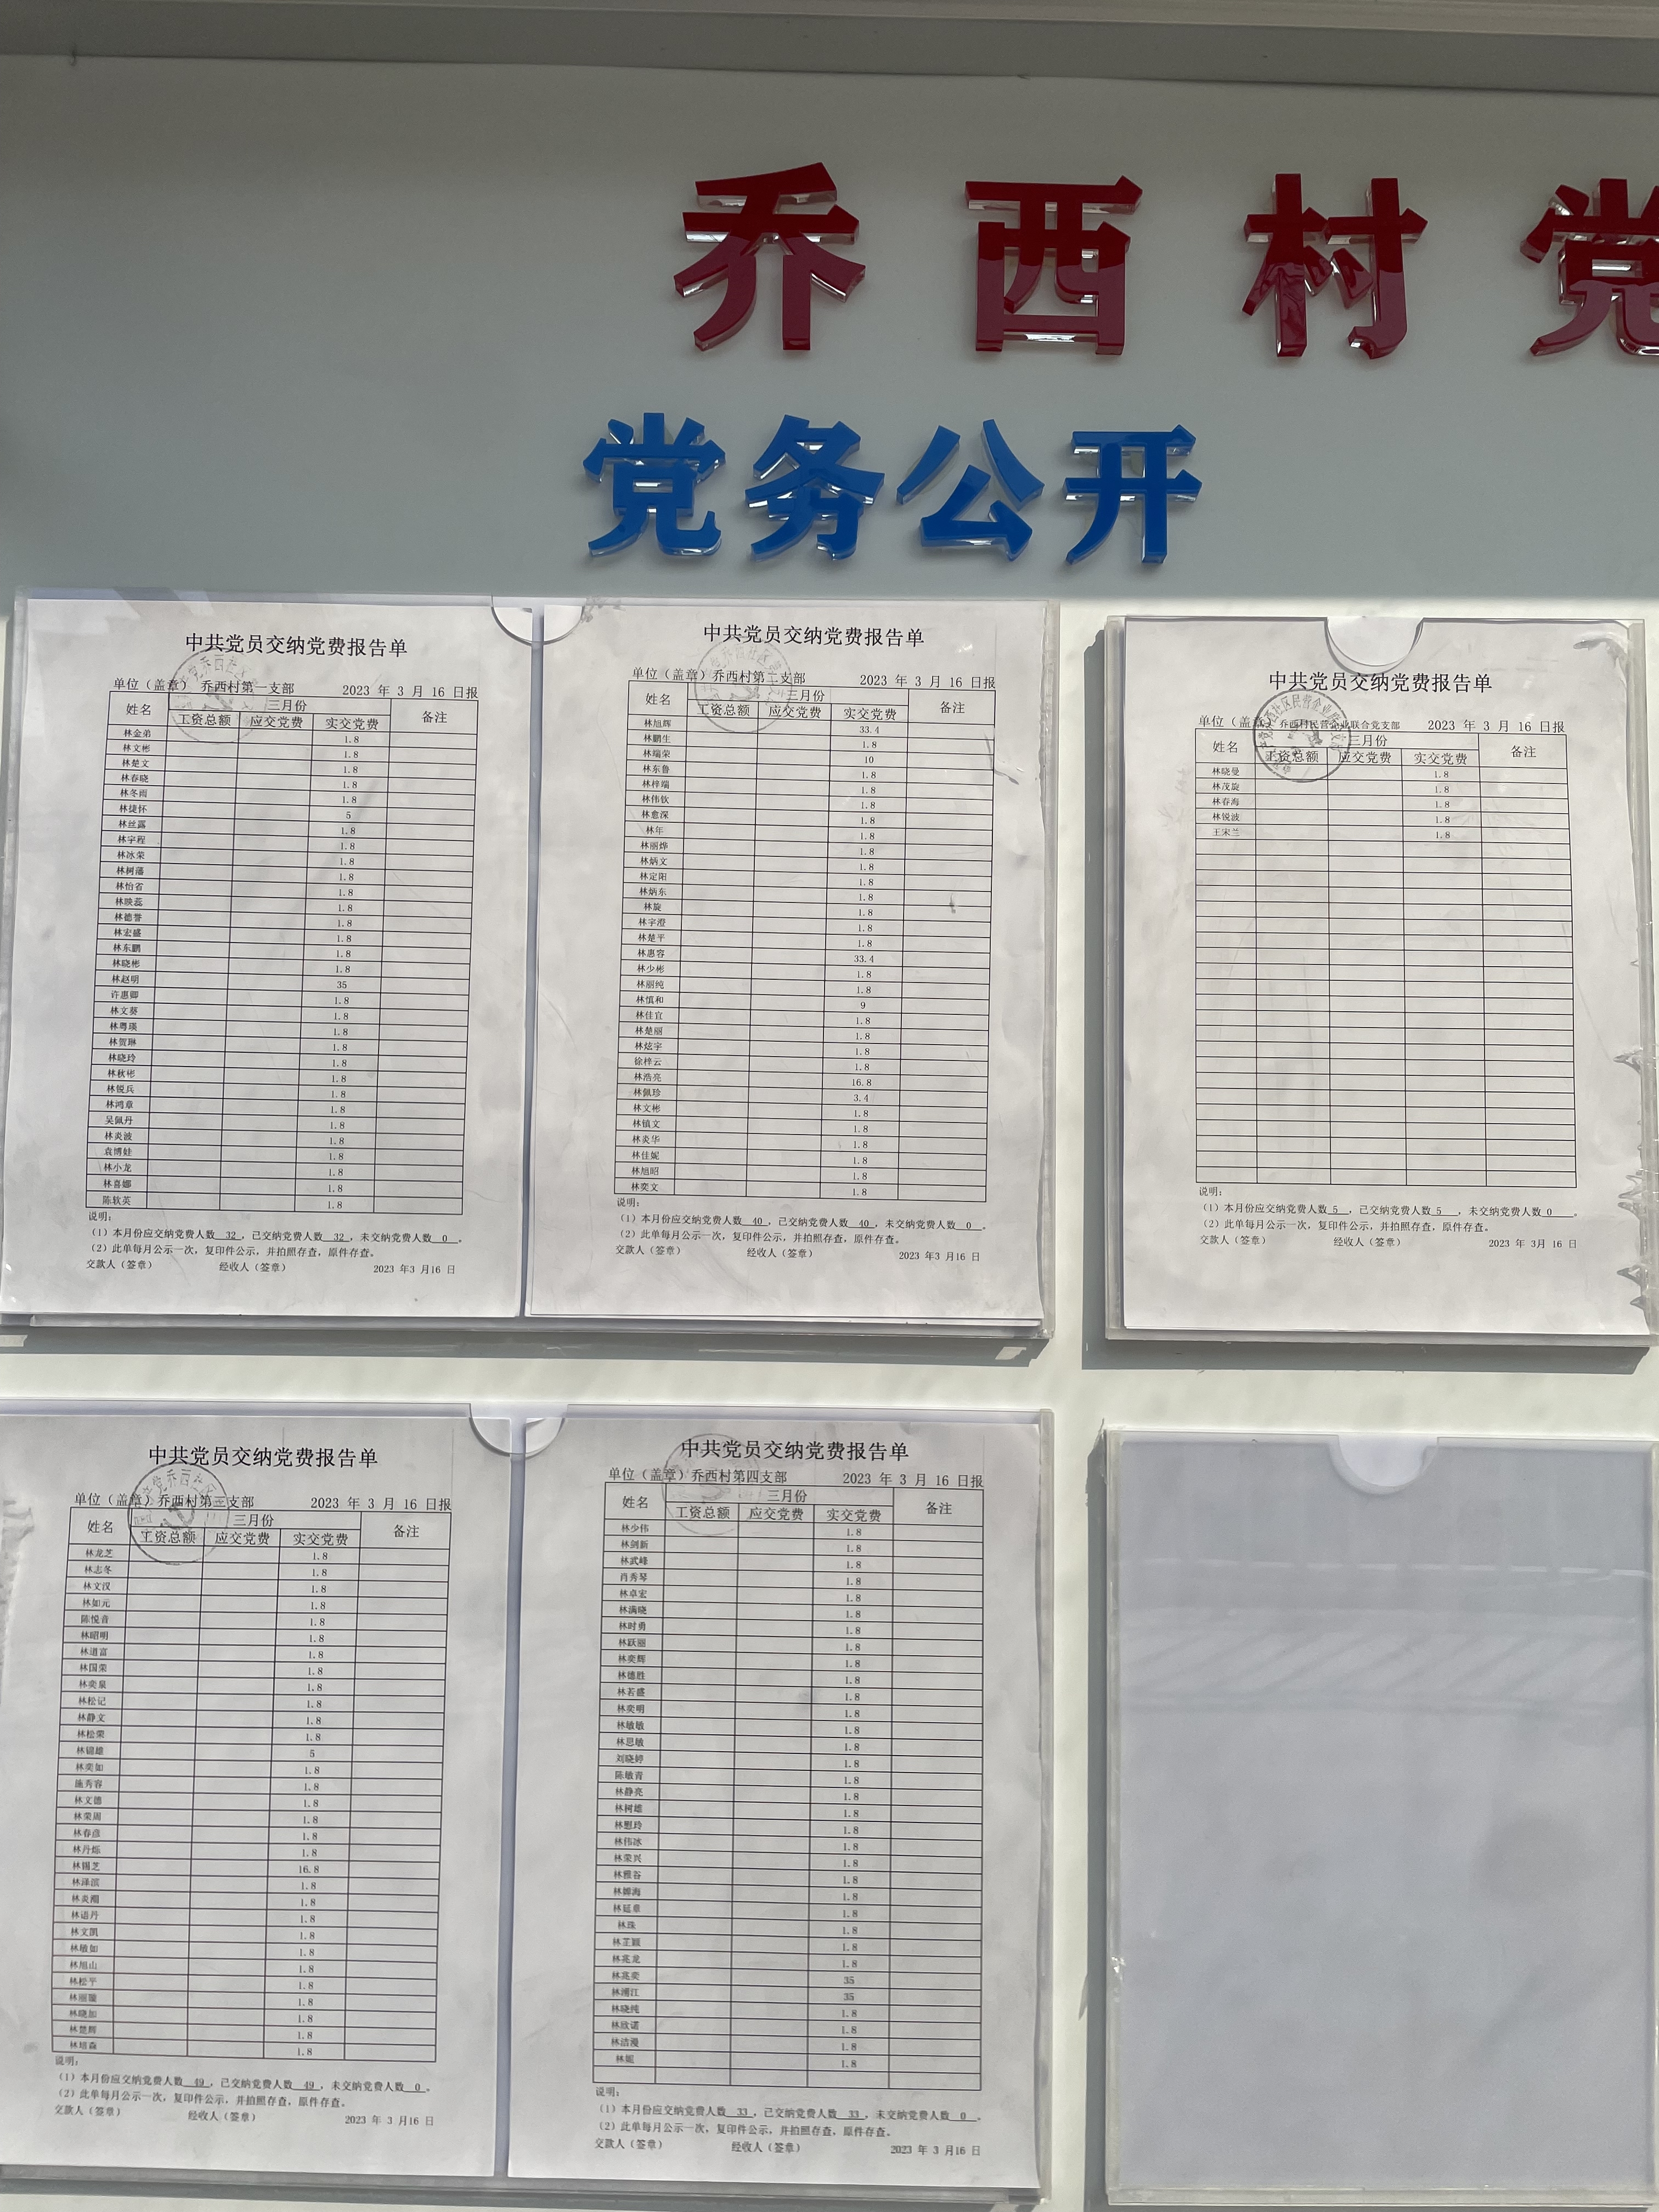 乔西村党
党务公开
中共党员交纳党费报告单
单位（盖章） 乔西村第一支部 2023 年 3 月 16 日报
姓名 三月份 备注
工资总额 应交党费 实交党费
林金弟 1.8
林文彬 1.8
林楚文 1.8
林春晓 1.8
林冬雨 1.8
林捷怀 5
林丝露 1.8
林宇程 1.8
林冰荣 1.8
林树藩 1.8
林怡省 1.8
林映蕊 1.8
林德誉 1.8
林宏盛 1.8
林东鹏 1.8
林晓彬 1.8
林赵明 35
许惠卿 1.8
林文葵 1.8
林粤瑛 1.8
林贺琳 1.8
林晓玲 1.8
林秋彬 1.8
林锐兵 1.8
林鸿章 1.8
吴佩丹 1.8
林炎波 1.8
袁博娃 1.8
林小龙 1.8
林喜娜 1.8
陈软英 1.8
说明：
（1）本月份应交纳党费人数 32 ，已交纳党费人数 32 ，未交纳党费人数 0 。
（2）此单每月公示一次，复印件公示，并拍照存查，原件存查。
交款人（签章） 经收人（签章） 2023 年3 月16 日
中共党员交纳党费报告单
单位（盖章）乔西村第二支部 2023 年 3 月 16 日报
姓名 三月份 备注
工资总额 应交党费 实交党费
林旭辉 33.4
林鹏生 1.8
林瑞荣 10
林东鲁 1.8
林梓端 1.8
林伟钦 1.8
林愈深 1.8
林年 1.8
林丽烨 1.8
林炳文 1.8
林定阳 1.8
林炳东 1.8
林旋 1.8
林宇澄 1.8
林楚平 1.8
林惠容 33.4
林少彬 1.8
林丽纯 1.8
林慎和 9
林佳宜 1.8
林楚丽 1.8
林炫宇 1.8
徐梓云 1.8
林浩亮 16.8
林佩珍 3.4
林文彬 1.8
林镇文 1.8
林炎华 1.8
林佳妮 1.8
林旭昭 1.8
林奕文 1.8
说明：
（1）本月份应交纳党费人数 40 ，已交纳党费人数 40 ，未交纳党费人数 0 。
（2）此单每月公示一次，复印件公示，并拍照存查，原件存查。
交款人（签章） 经收人（签章） 2023 年3 月16 日
中共党员交纳党费报告单
单位（盖章）乔西村民营企业联合党支部 2023 年 3 月 16 日报
姓名 三月份 备注
工资总额 应交党费 实交党费
林晓曼 1.8
林茂旋 1.8
林春海 1.8
林锐波 1.8
王宋兰 1.8
说明：
（1）本月份应交纳党费人数 5 ，已交纳党费人数 5 ，未交纳党费人数 0 。
（2）此单每月公示一次，复印件公示，并拍照存查，原件存查。
交款人（签章） 经收人（签章） 2023 年 3月 16 日
中共党员交纳党费报告单
单位（盖章）乔西村第三支部 2023 年 3 月 16 日报
姓名 三月份 备注
工资总额 应交党费 实交党费
林龙芝 1.8
林志冬 1.8
林文汉 1.8
林如元 1.8
陈悦音 1.8
林昭明 1.8
林道富 1.8
林国荣 1.8
林奕泉 1.8
林松记 1.8
林静文 1.8
林松荣 1.8
林锦雄 5
林奕如 1.8
施秀容 1.8
林文德 1.8
林荣周 1.8
林春彦 1.8
林丹烁 1.8
林锡芝 16.8
林泽滨 1.8
林炎潮 1.8
林语丹 1.8
林文凯 1.8
林敏如 1.8
林旭山 1.8
林松平 1.8
林丽璇 1.8
林晓加 1.8
林楚辉 1.8
林培森 1.8
说明：
（1）本月份应交纳党费人数 49 ，已交纳党费人数 49 ，未交纳党费人数 0 。
（2）此单每月公示一次，复印件公示，并拍照存查，原件存查。
交款人（签章） 经收人（签章） 2023 年 3 月16 日
中共党员交纳党费报告单
单位（盖章）乔西村第四支部 2023 年 3 月 16 日报
姓名 三月份 备注
工资总额 应交党费 实交党费
林少伟 1.8
林剑新 1.8
林武峰 1.8
肖秀琴 1.8
林卓宏 1.8
林满晓 1.8
林时勇 1.8
林跃丽 1.8
林奕辉 1.8
林德胜 1.8
林若盛 1.8
林奕明 1.8
林敏敏 1.8
林思敏 1.8
刘晓婷 1.8
陈敏青 1.8
林静亮 1.8
林树雄 1.8
林慰玲 1.8
林伟冰 1.8
林荣兴 1.8
林雅谷 1.8
林娜海 1.8
林延章 1.8
林珠 1.8
林芷颖 1.8
林兆龙 1.8
林兆奕 35
林浦江 35
林晓纯 1.8
林欣诺 1.8
林洁漫 1.8
林妮 1.8
说明：
（1）本月份应交纳党费人数 33 ，已交纳党费人数 33 ，未交纳党费人数 0 。
（2）此单每月公示一次，复印件公示，并拍照存查，原件存查。
交款人（签章） 经收人（签章） 2023 年 3 月16 日